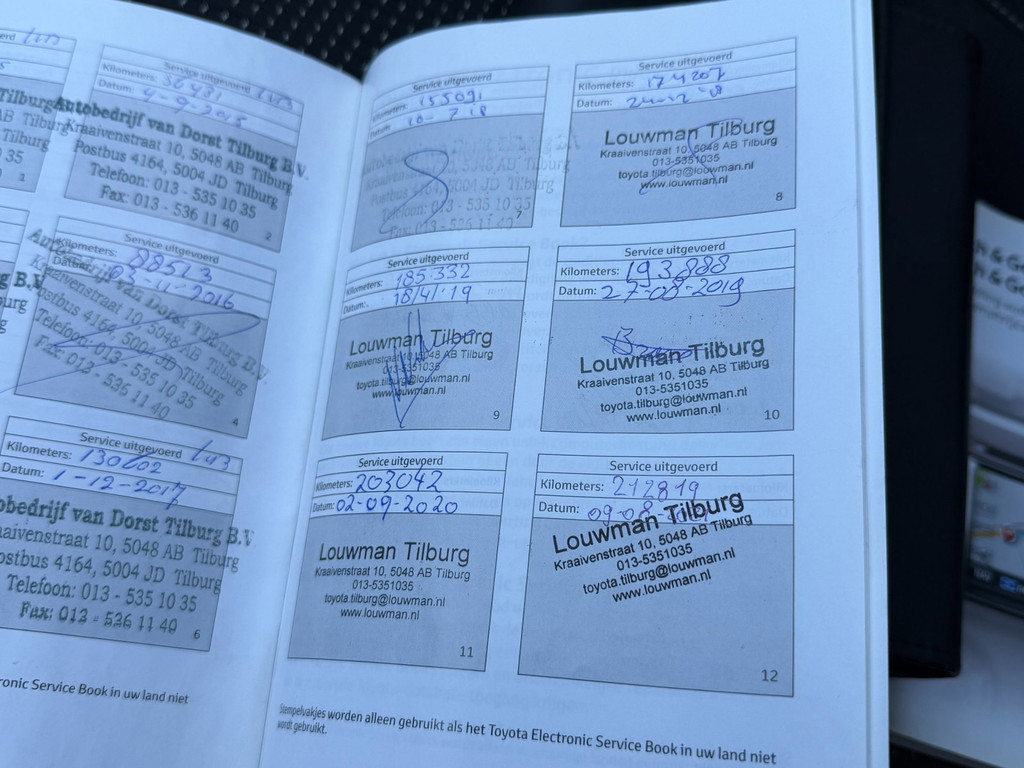 Service uitgevoerd
Kilometers: 56481
Datum: 4-9-2015
Autobedrijf van Dorst Tilburg B.V.
Kraaivenstraat 10, 5048 AB Tilburg
Postbus 4164, 5004 JD Tilburg
Telefoon: 013 - 535 10 35
Fax: 013 - 536 11 40
2
Kilometers: 88513
Datum: 03-11-2016
Kraaivenstraat 10, 5048 AB Tilburg
Postbus 4164, 5004 JD Tilburg
Telefoon: 013 - 535 10 35
Fax: 013 - 536 11 40
4
Service uitgevoerd
Kilometers: 130602
Datum: 1-12-2017
Autobedrijf van Dorst Tilburg B.V.
Kraaivenstraat 10, 5048 AB Tilburg
Postbus 4164, 5004 JD Tilburg
Telefoon: 013 - 535 10 35
Fax: 013 - 536 11 40
6
ronic Service Book in uw land niet
Service uitgevoerd
Kilometers: 155091
Datum:
5004 JD Tilburg
Telefoon: 013 - 535 10 35
Fax: 013 - 536 11 40
7
Service uitgevoerd
Kilometers: 174207
Datum:
Louwman Tilburg
Kraaivenstraat 10, 5048 AB Tilburg
013-5351035
toyota.tilburg@louwman.nl
www.louwman.nl
8
Service uitgevoerd
Kilometers: 185.332
Datum: 18/4/'19
Louwman Tilburg
Kraaivenstraat 10, 5048 AB Tilburg
013-5351035
toyota.tilburg@louwman.nl
www.louwman.nl
9
Service uitgevoerd
Kilometers: 193.888
Datum: 27-08-2019
Louwman Tilburg
Kraaivenstraat 10, 5048 AB Tilburg
013-5351035
toyota.tilburg@louwman.nl
www.louwman.nl
10
Service uitgevoerd
Kilometers: 203042
Datum: 02-09-2020
Louwman Tilburg
Kraaivenstraat 10, 5048 AB Tilburg
013-5351035
toyota.tilburg@louwman.nl
www.louwman.nl
11
Service uitgevoerd
Kilometers: 212819
Datum: 09-08-
Louwman Tilburg
Kraaivenstraat 10, 5048 AB Tilburg
013-5351035
toyota.tilburg@louwman.nl
www.louwman.nl
12
Stempelvakjes worden alleen gebruikt als het Toyota Electronic Service Book in uw land niet
wordt gebruikt.